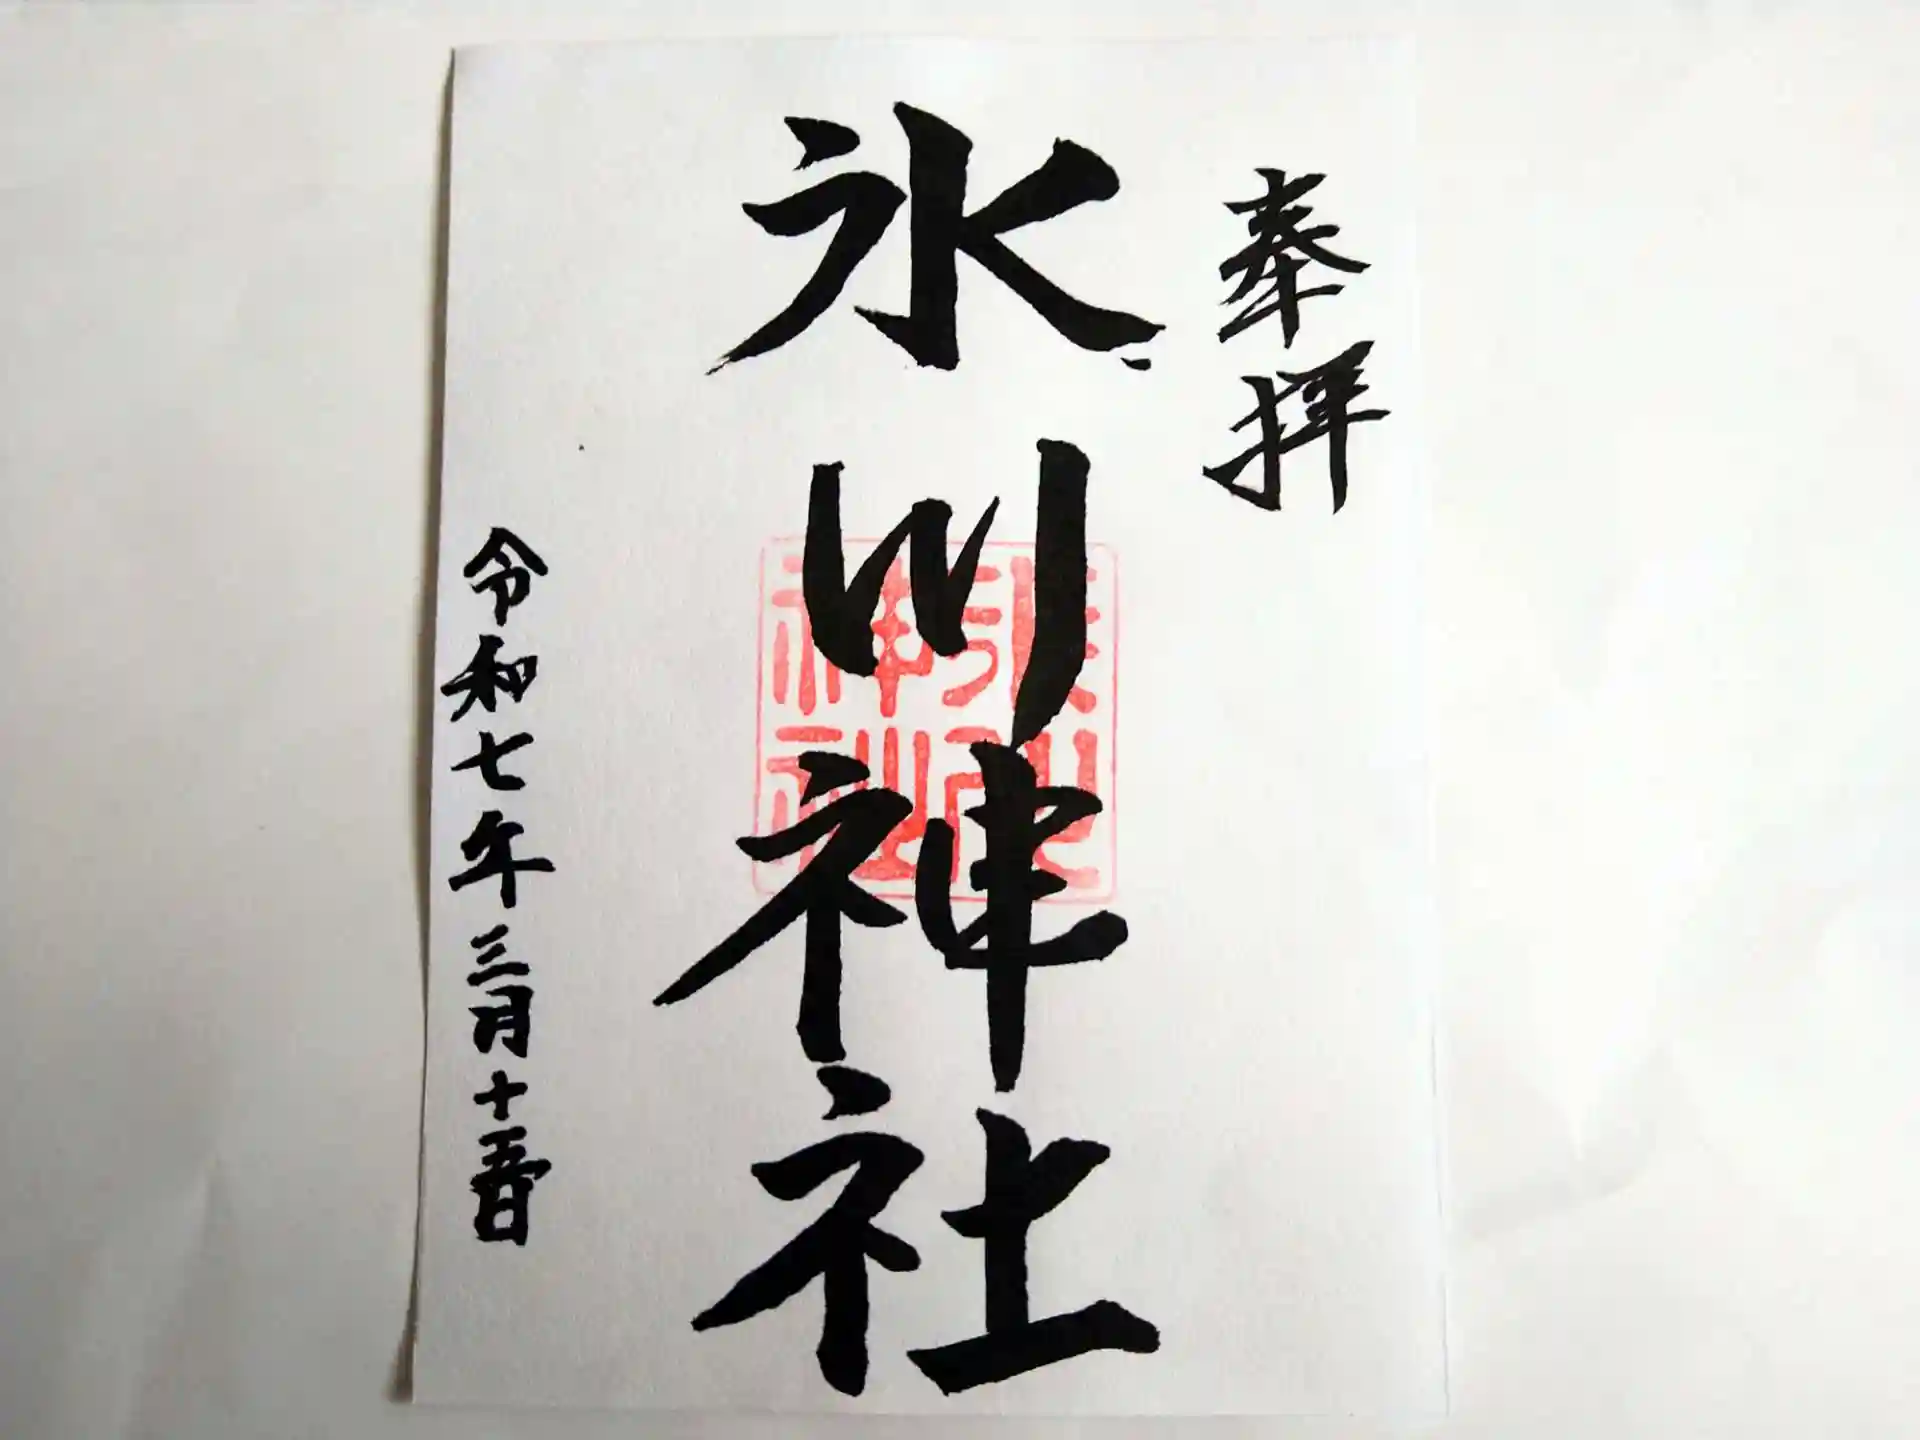 奉拝
氷川神社
神社
令和七年三月十五日